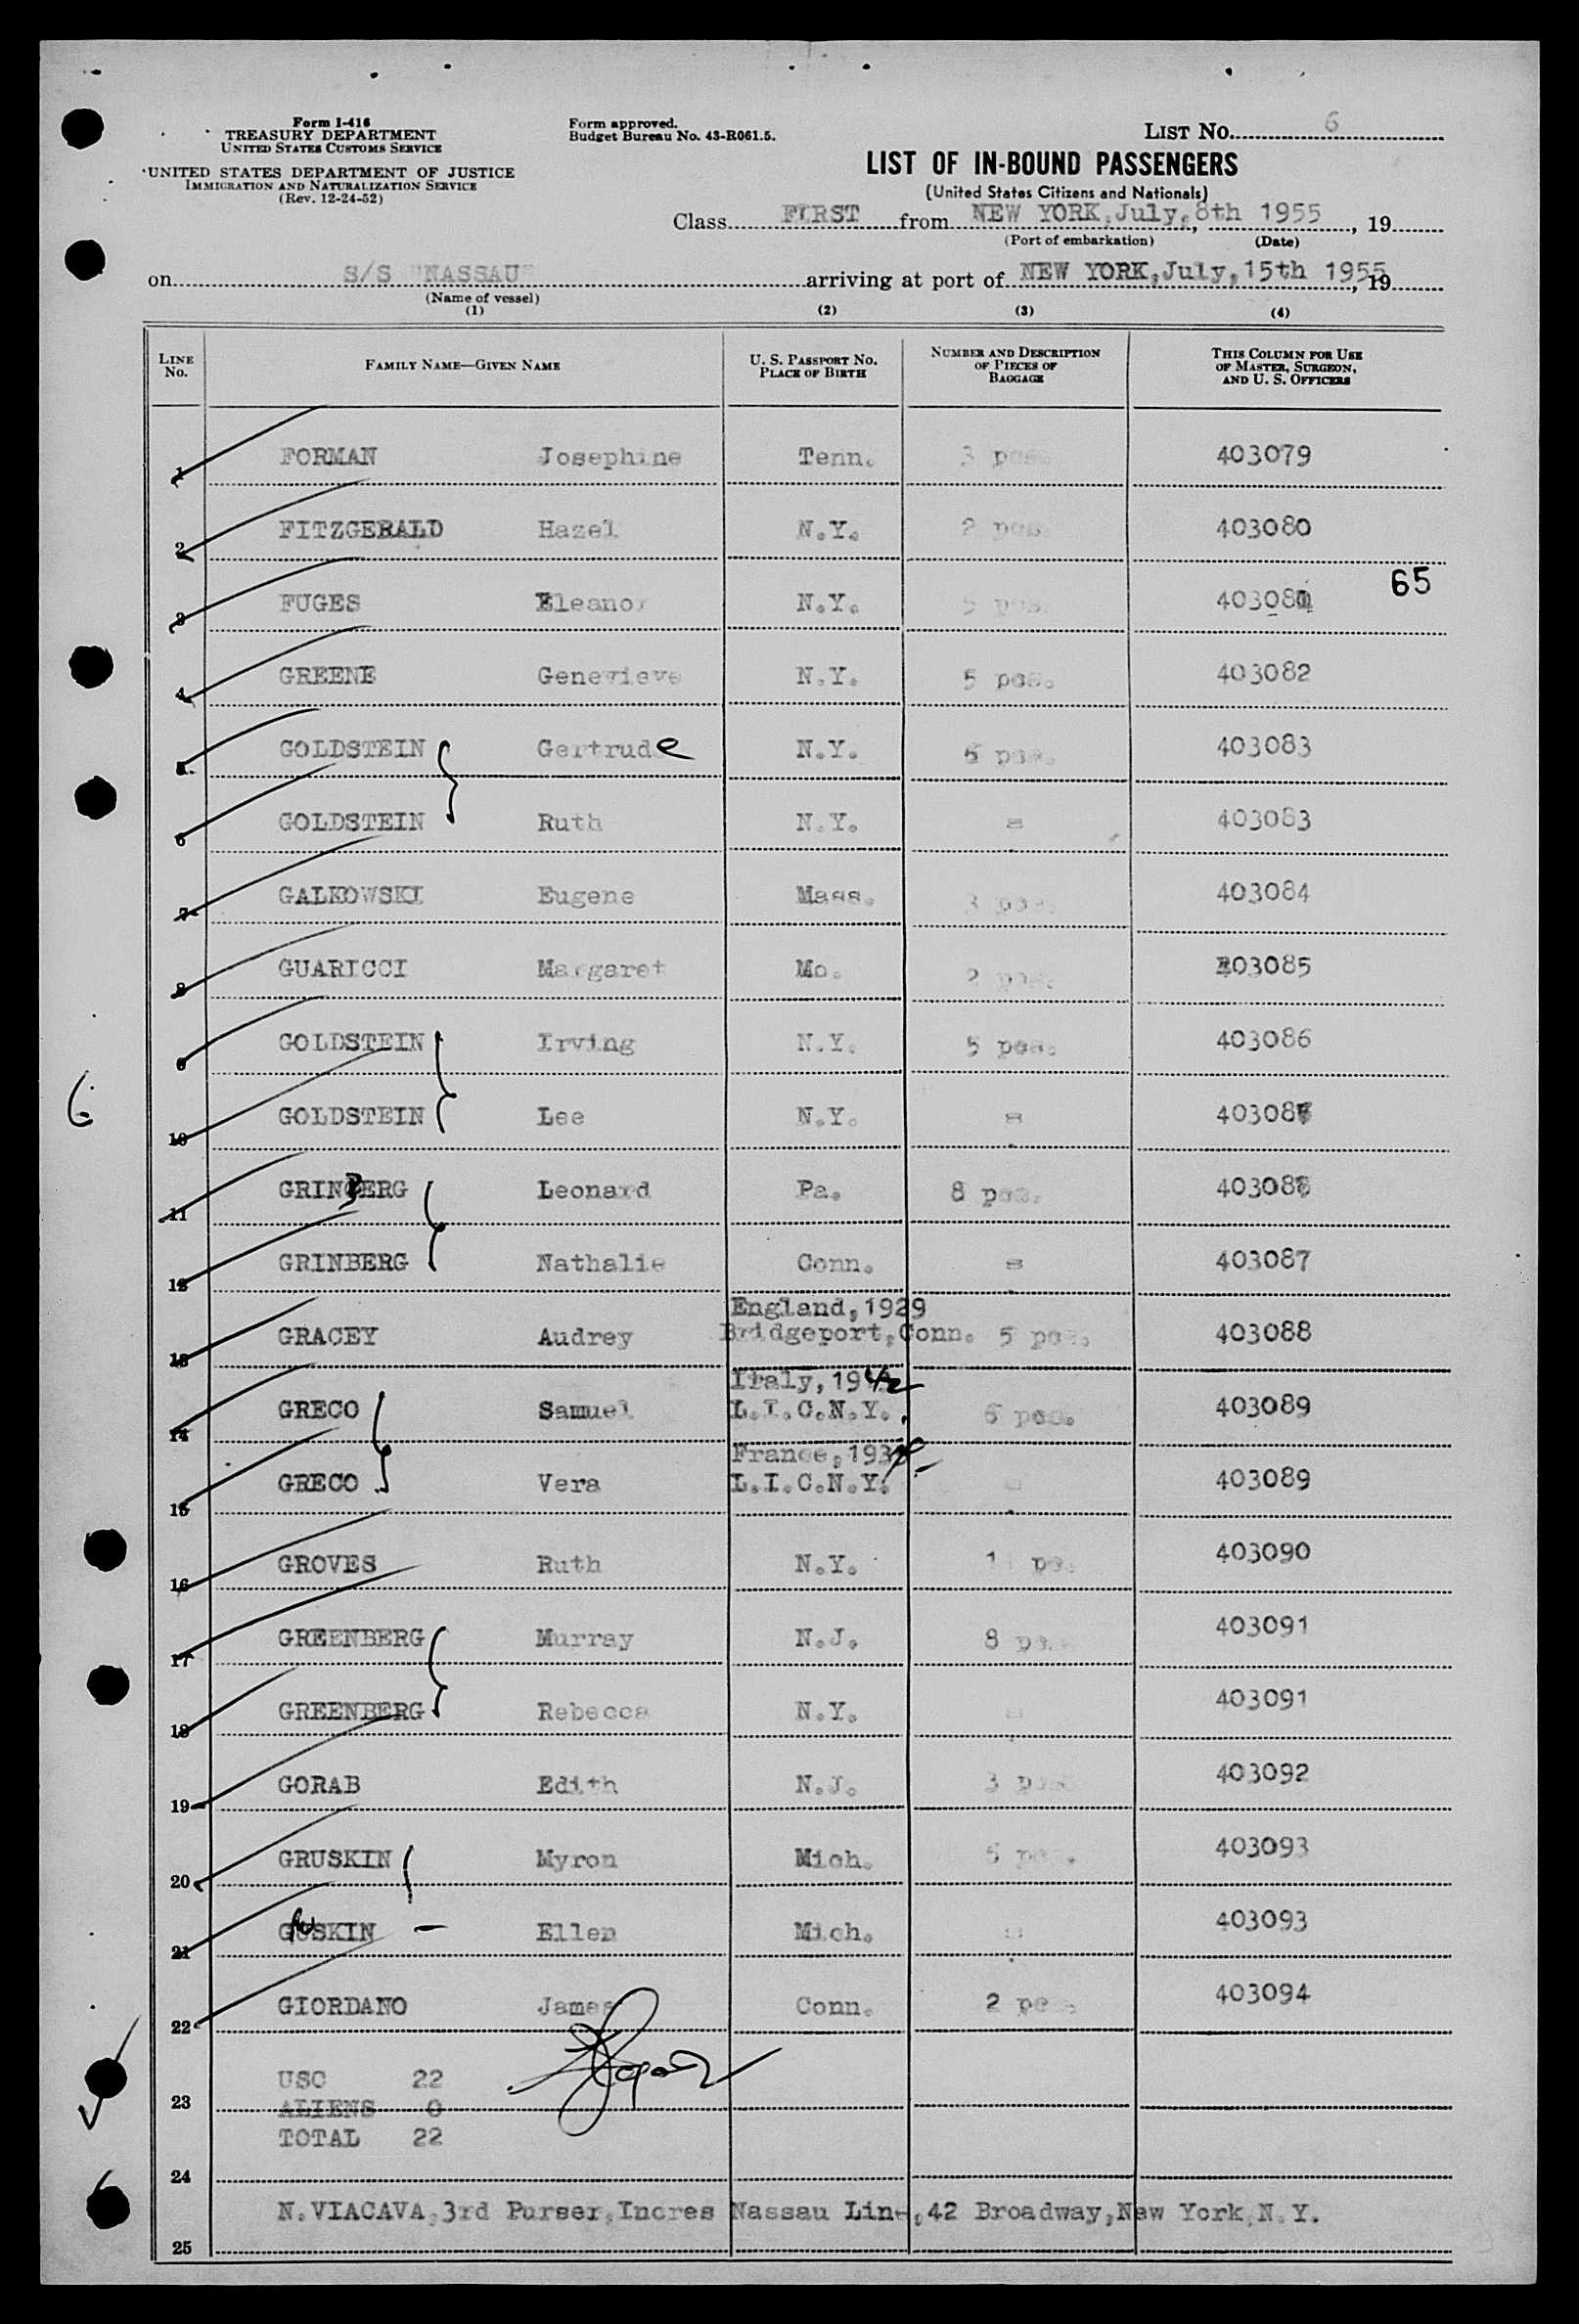 Form I-416
TREASURY DEPARTMENT
UNITED STATES CUSTOMS SERVICE
UNITED STATES DEPARTMENT OF JUSTICE
IMMIGRATION AND NATURALIZATION SERVICE
(Rev. 12-24-52)
Form approved.
Budget Bureau No. 43-R061.5.
LIST NO. 6
LIST OF IN-BOUND PASSENGERS
(United States Citizens and Nationals)
Class FIRST from NEW YORK, July, 8th 1955, 19
(Port of embarkation) (Date)
on S/S "NASSAU" arriving at port of NEW YORK, July, 15th 1955, 19
(Name of vessel)
(1) (2) (3) (4)
LINE NO. FAMILY NAME—GIVEN NAME U. S. PASSPORT NO. PLACE OF BIRTH NUMBER AND DESCRIPTION OF PIECES OF BAGGAGE THIS COLUMN FOR USE OF MASTER, SURGEON, AND U. S. OFFICERS
1 FORMAN Josephine Tenn. 3 pcs. 403079
2 FITZGERALD Hazel N.Y. 2 pcs. 403080
65
3 FUGES Eleanor N.Y. 5 pcs. 403081
4 GREENE Genevieve N.Y. 5 pcs. 403082
5 GOLDSTEIN Gertrude N.Y. 6 pcs. 403083
6 GOLDSTEIN Ruth N.Y. 403083
7 GALKOWSKI Eugene Mass. 3 pcs. 403084
8 GUARICCI Margaret Mo. 2 pcs. 403085
9 GOLDSTEIN Irving N.Y. 5 pcs. 403086
6
10 GOLDSTEIN Lee N.Y. 40308
11 GRINBERG Leonard Pa. 8 pcs. 40308
12 GRINBERG Nathalie Conn. 403087
England, 1929
13 GRACEY Audrey Bridgeport, Conn. 5 pcs. 403088
Italy, 1942
14 GRECO Samuel L.I.C.N.Y. 6 pcs. 403089
France, 193
15 GRECO Vera L.I.C.N.Y. 403089
16 GROVES Ruth N.Y. 1 pc. 403090
17 GREENBERG Murray N.J. 8 pcs. 403091
18 GREENBERG Rebecca N.Y. 403091
19 GORAB Edith N.J. 3 pcs. 403092
20 GRUSKIN Myron Mich. 6 pcs. 403093
21 GRUSKIN Ellen Mich. 403093
22 GIORDANO James Conn. 2 pcs. 403094
USC 22
23 ALIENS 0
TOTAL 22
24
N.VIACAVA, 3rd Purser, Incres Nassau Line, 42 Broadway, New York, N.Y.
25
6